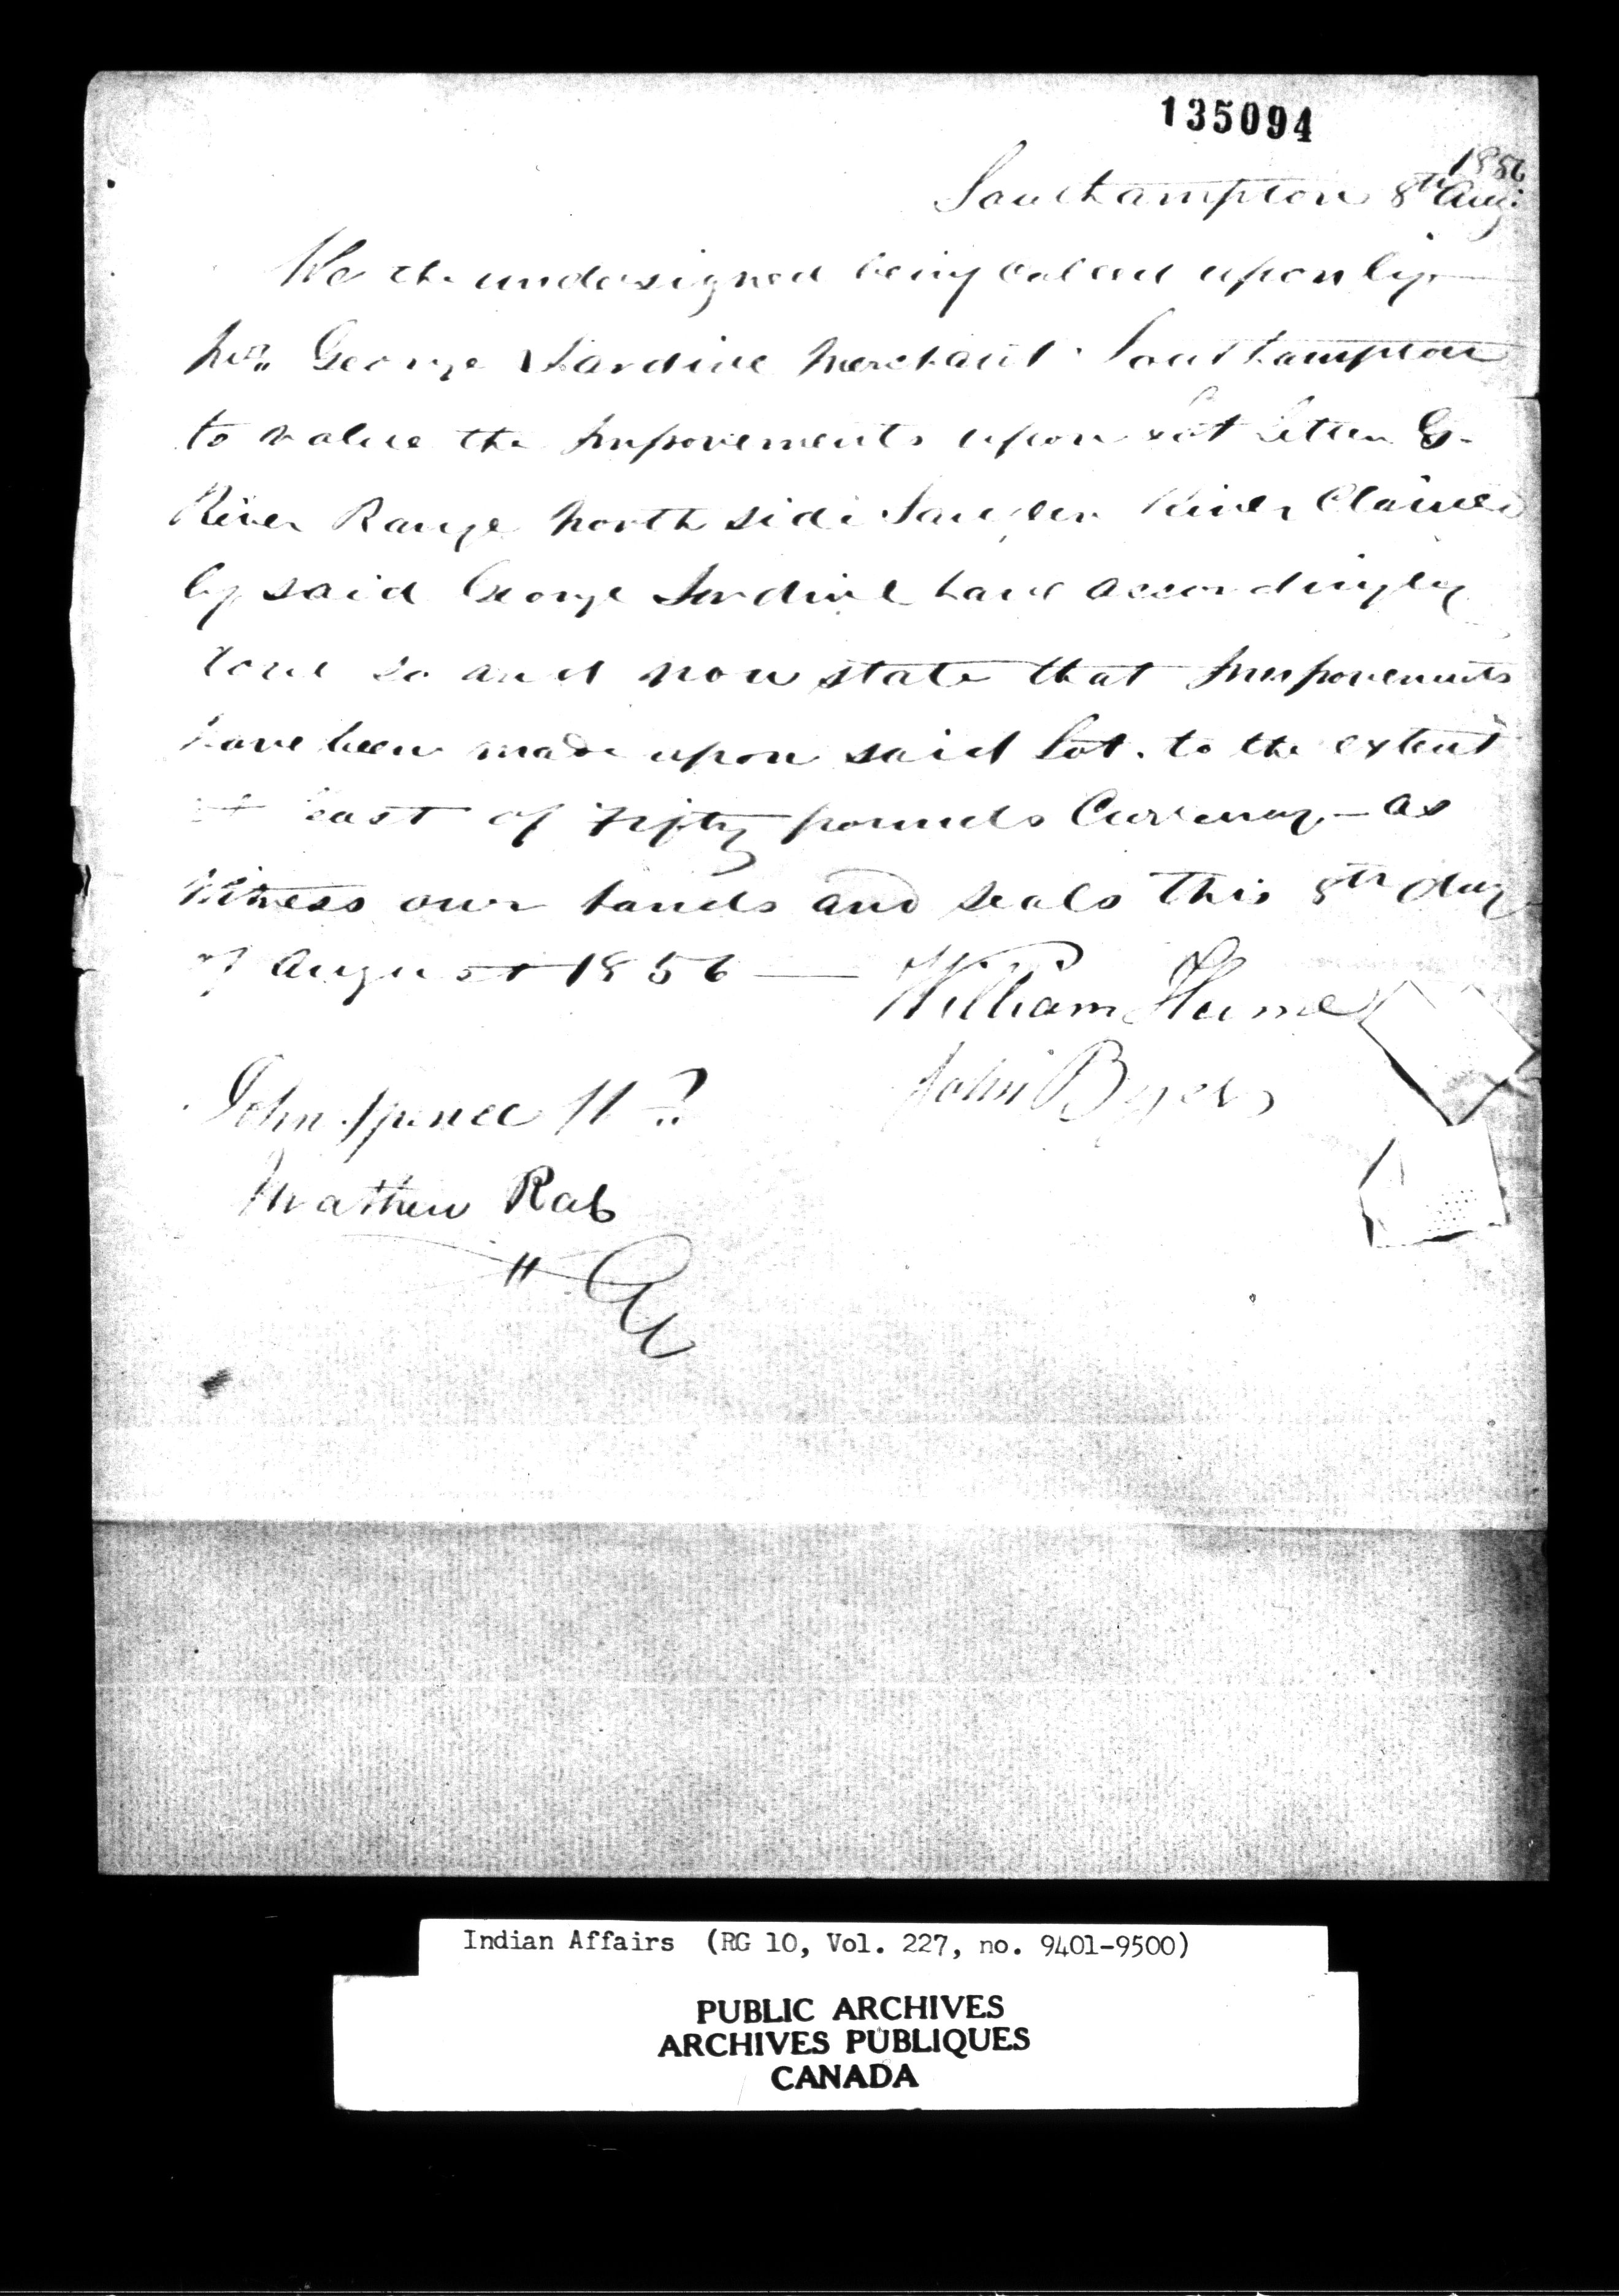 135094
1856
Southampton 8th Aug:
We the undersigned being called upon by
Mr. George Jardine Merchant Southampton
to value the Improvements upon Lot Letter G-
River Range North side Saugeen River Claimed
by said George Jardine have accordingly
done so and now state that Improvements
have been made upon said Lot. to the extent
at least of Fifty pounds Currency - as
Witness our hands and seals this 8th day
of August 1856 — William Hume
John Byers
John Spence
Mathew
Indian Affairs (RG 10, Vol. 227, no. 9401-9500)
PUBLIC ARCHIVES
ARCHIVES PUBLIQUES
CANADA